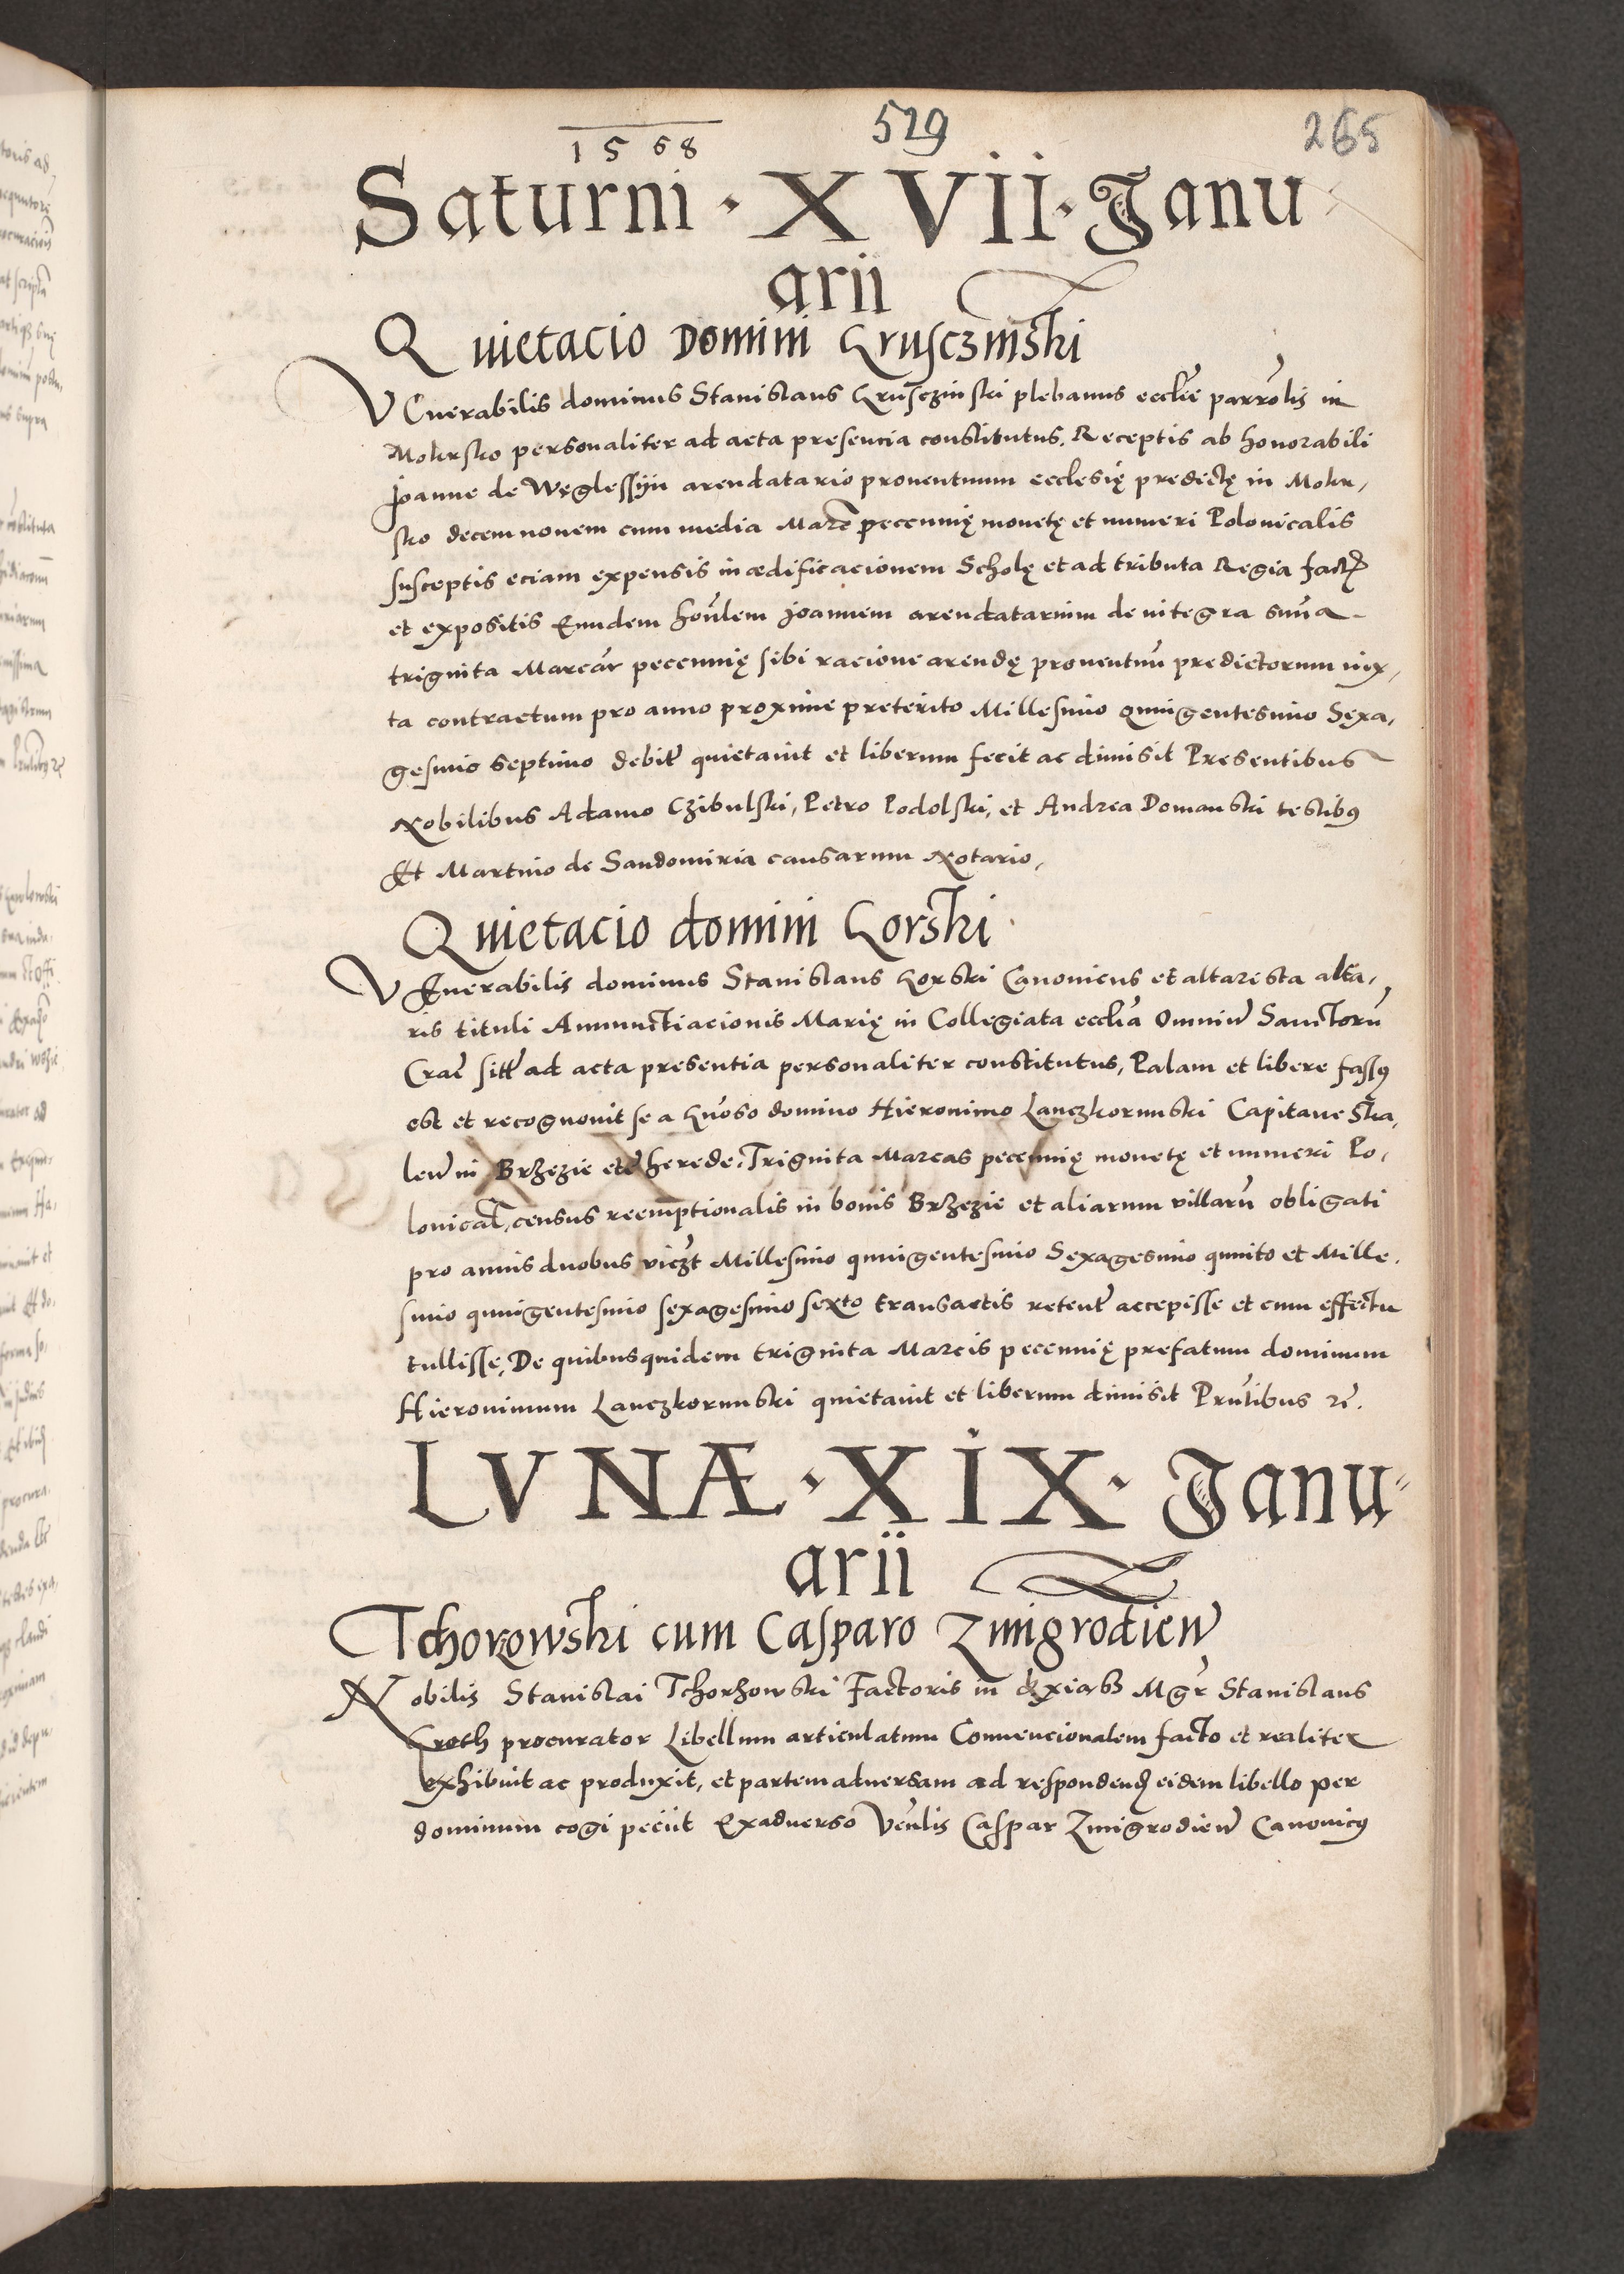 1568
529
265
Saturni · XVII · Janu
arii
Quietacio Domini Gruscziński
VEnerabilis dominus Stanislaus Gruscziński plebanus ecclīe parrōlis in
Mokrsko personaliter ad acta presencia constitutus. Receptis ab honorabili
Joanne de Węglessyn arendatario proventuum ecclesię predictę in Mokr,
sko decem novem cum media Marc̄ peccunię monetę et numeri Polonicalis
susceptis eciam expensis in ædificacionem Scholę et ad tributa Regia fact
et expositis Eundem hon̄lem Joannem arendatarium de integra sum̄a
triginta Marcar̄ peccunię sibi racione arendę proventuū predictorum iux,
ta contractum pro anno proxime preterito Millesimo quingentesimo Sexa,
gesimo septimo debit̄ quietavit et liberum fecit ac dimisit Presentibus
Nobilibus Adamo Czibulski, Petro Podolski, et Andrea Domanski testibꝰ
Et Martino de Sandomiria causarum Notario,
Quietacio domini Gorski
VEnerabilis dominus Stanislaus Gorski Canonicus et altarista alta,
ris tituli Annunctiacionis Marię in Collegiata ecclīa Omniū Sanctorū
Crac̄ sitt̄ ad acta presentia personaliter constitutus, Palam et libere fassꝰ
est et recognovit se a Gn̄oso domino Hieronimo Lanczkorunski Capitaneo Ska,
len̄ in Brzezie etc̄ herede, Triginta Marcas peccunię monetę et numeri Po,
lonical̄, census reemptionalis in bonis Brzezie et aliarum villarū obligati
pro annis duobus vicꝫt Millesimo quingentesimo Sexagesimo quinto et Mille,
simo quingentesimo sexagesimo sexto transactis retent̄ accepisse et cum effectu
tullisse, De quibusquidem triginta Marcis peccunię prefatum dominum
Hieronimum Lanczkorunski quietavit et liberum dimisit Prn̄tibus ꝛc̄.
LVNÆ · XIX · Janu
arii
Tchorzowski cum Casparo Zmigrodien̄
Nobilis Stanislai Tchorzowski Factoris in Mgr̄ Stanislaus
Groth procurator Libellum articulatum Convencionalem facto et realiter
exhibuit ac produxit, et partem adversam ad respondend eidem libello per
dominum cogi peciit Exadverso Ven̄lis Caspar Zmigrodien̄ Canonicꝰ